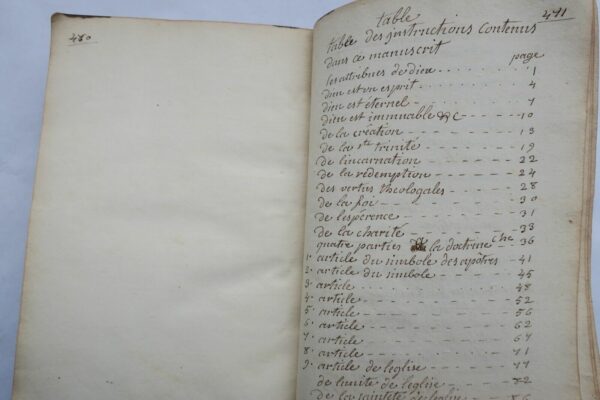 480
471
table
table des instructions contenus
dans ce manuscrit
page
les attribues de dieu 1
dieu est un esprit 4
dieu est éternel 7
dieu est immuable &c 10
de la création 13
de la ste trinité 19
de lincarnation 22
de la rédemption 24
des vertus theologales 28
de la foi 30
de lespérence 31
de la charité 33
quatre parties de la doctrine che 36
1. article du simbole des apôtres 41
2. article du simbole 45
3. article 48
4. article 52
5. article 56
6. article 62
7. article 67
8. article 71
9. article de leglise 77
de lunité de leglise 82
de la sainteté de leglise 86